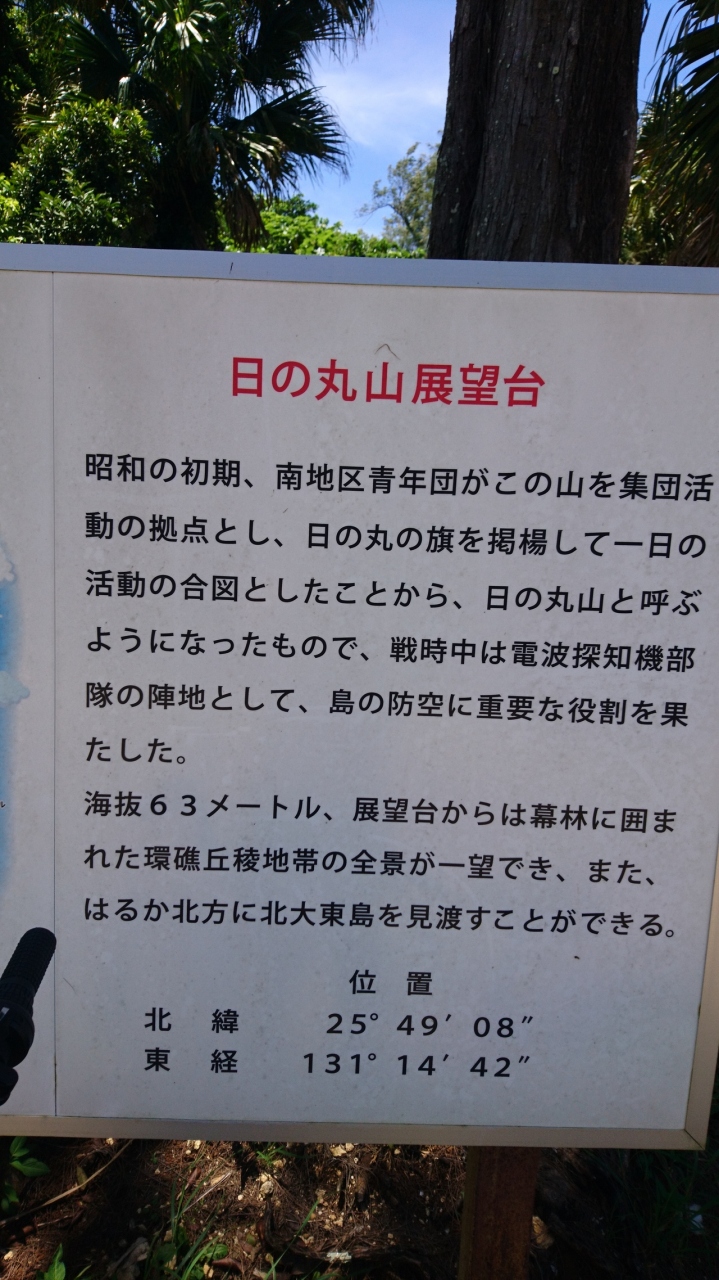 日の丸山展望台
昭和の初期、南地区青年団がこの山を集団活
動の拠点とし、日の丸の旗を掲楊して一日の
活動の合図としたことから、日の丸山と呼ぶ
ようになったもので、戦時中は電波探知機部
隊の陣地として、島の防空に重要な役割を果
たした。
海抜６３メートル、展望台からは幕林に囲ま
れた環礁丘稜地帯の全景が一望でき、また、
はるか北方に北大東島を見渡すことができる。
位　置
北　緯　25° 49′ 08″
東　経　131° 14′ 42″